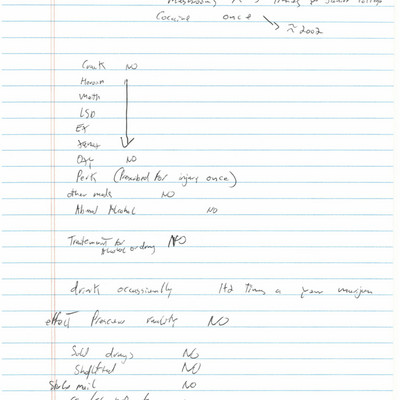 Cocaine once
≈ 2002
Crack NO
Heroin
Meth
LSD
EX
Xanax
Oxy NO
Perk (Prescribed for injury once)
other meds NO
Abused Alcohol NO
Treatment for alcohol or drug NO
drink occasionally 1 to 2 times a year
effect NO
Sold drugs NO
Shoplifted NO
Stole mail NO